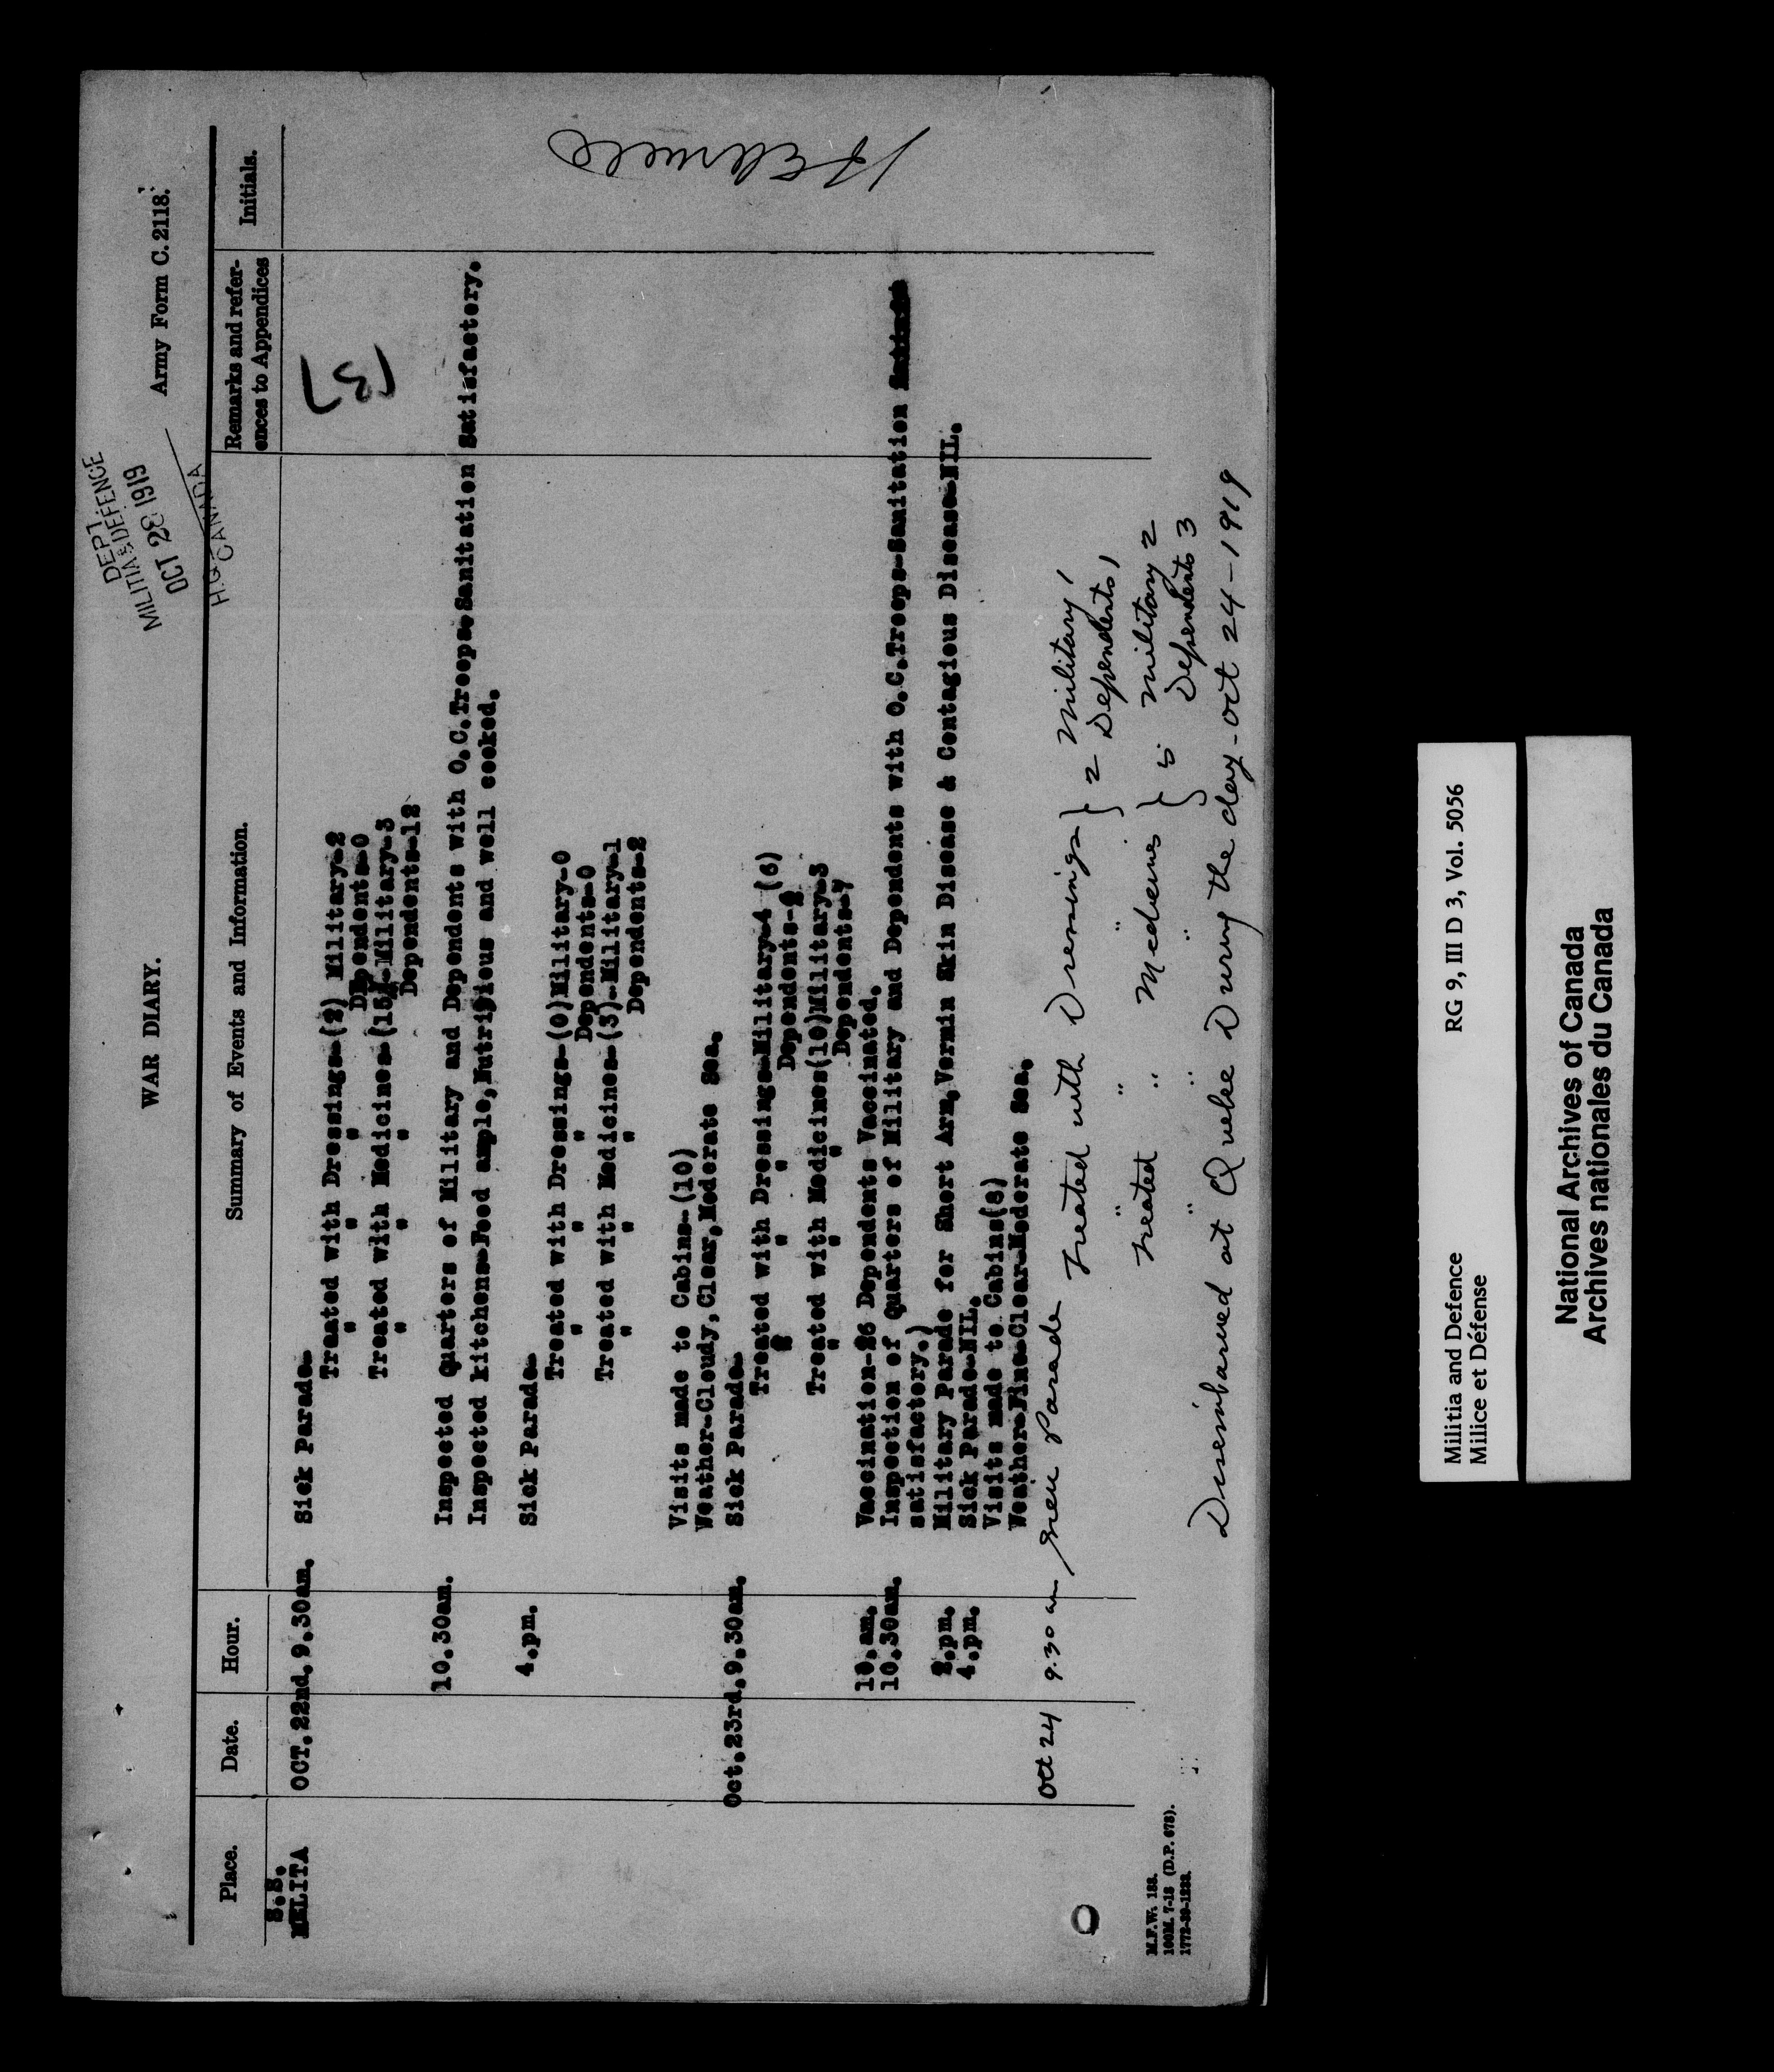 DEPT.
MILITIA & DEFENCE
OCT 28 1919
H.Q. CANADA
Army Form C. 2118.
WAR DIARY.
Place. Date. Hour. Summary of Events and Information. Remarks and refer- Initials.
ences to Appendices
S.S.
MELITA OCT.22nd,9.30am. Sick Parade-
Treated with Dressings-(2) Military-2
" " " Dependents-0
Treated with Medicines-(15)-Military-3
" " " Dependents-12
10.30am. Inspected Quarters of Military and Dependents with O.C.Troops-Sanitation Satisfactory.
Inspected kitchens-Food ample,Nutritious and well cooked.
4.pm. Sick Parade-
Treated with Dressings-(0)Military-0
" " " Dependents-0
Treated with Medicines-(3)-Military-1
" " " Dependents-2
Visits made to Cabins-(10)
Weather-Cloudy,Clear,Moderate Sea.
Oct.23rd,9.30am. Sick Parade-
Treated with Dressings-Military-4 (6)
" " " Dependents-2
Treated with Medicines(10)Military-3
" " Dependents-7
10.am. Vaccination-26 Dependents Vaccinated.
10.30am. Inspection of Quarters of Military and Dependents with O.C.Troops-Sanitation
satisfactory.)
2.pm. Military Parade for Short Arm,Vermin Skin Disease & Contagious Disease-NIL.
4.pm. Sick Parade-NIL.
Visits made to Cabins(8)
Weather-Fine-Clear-Moderate Sea.
Oct 24 9.30 am Sick Parade Treated with Dressings } 2 Military 1
" " " Dependents 1
Treated " Medicines } 5 Military 2
" " " Dependents 3
Disembarked at Quebec During the day - Oct 24-1919
M.F.W. 188.
100M. 7-18 (D.P. 678).
1772-39-1238.
Militia and Defence RG 9, III D 3, Vol. 5056
Milice et Défense
National Archives of Canada
Archives nationales du Canada